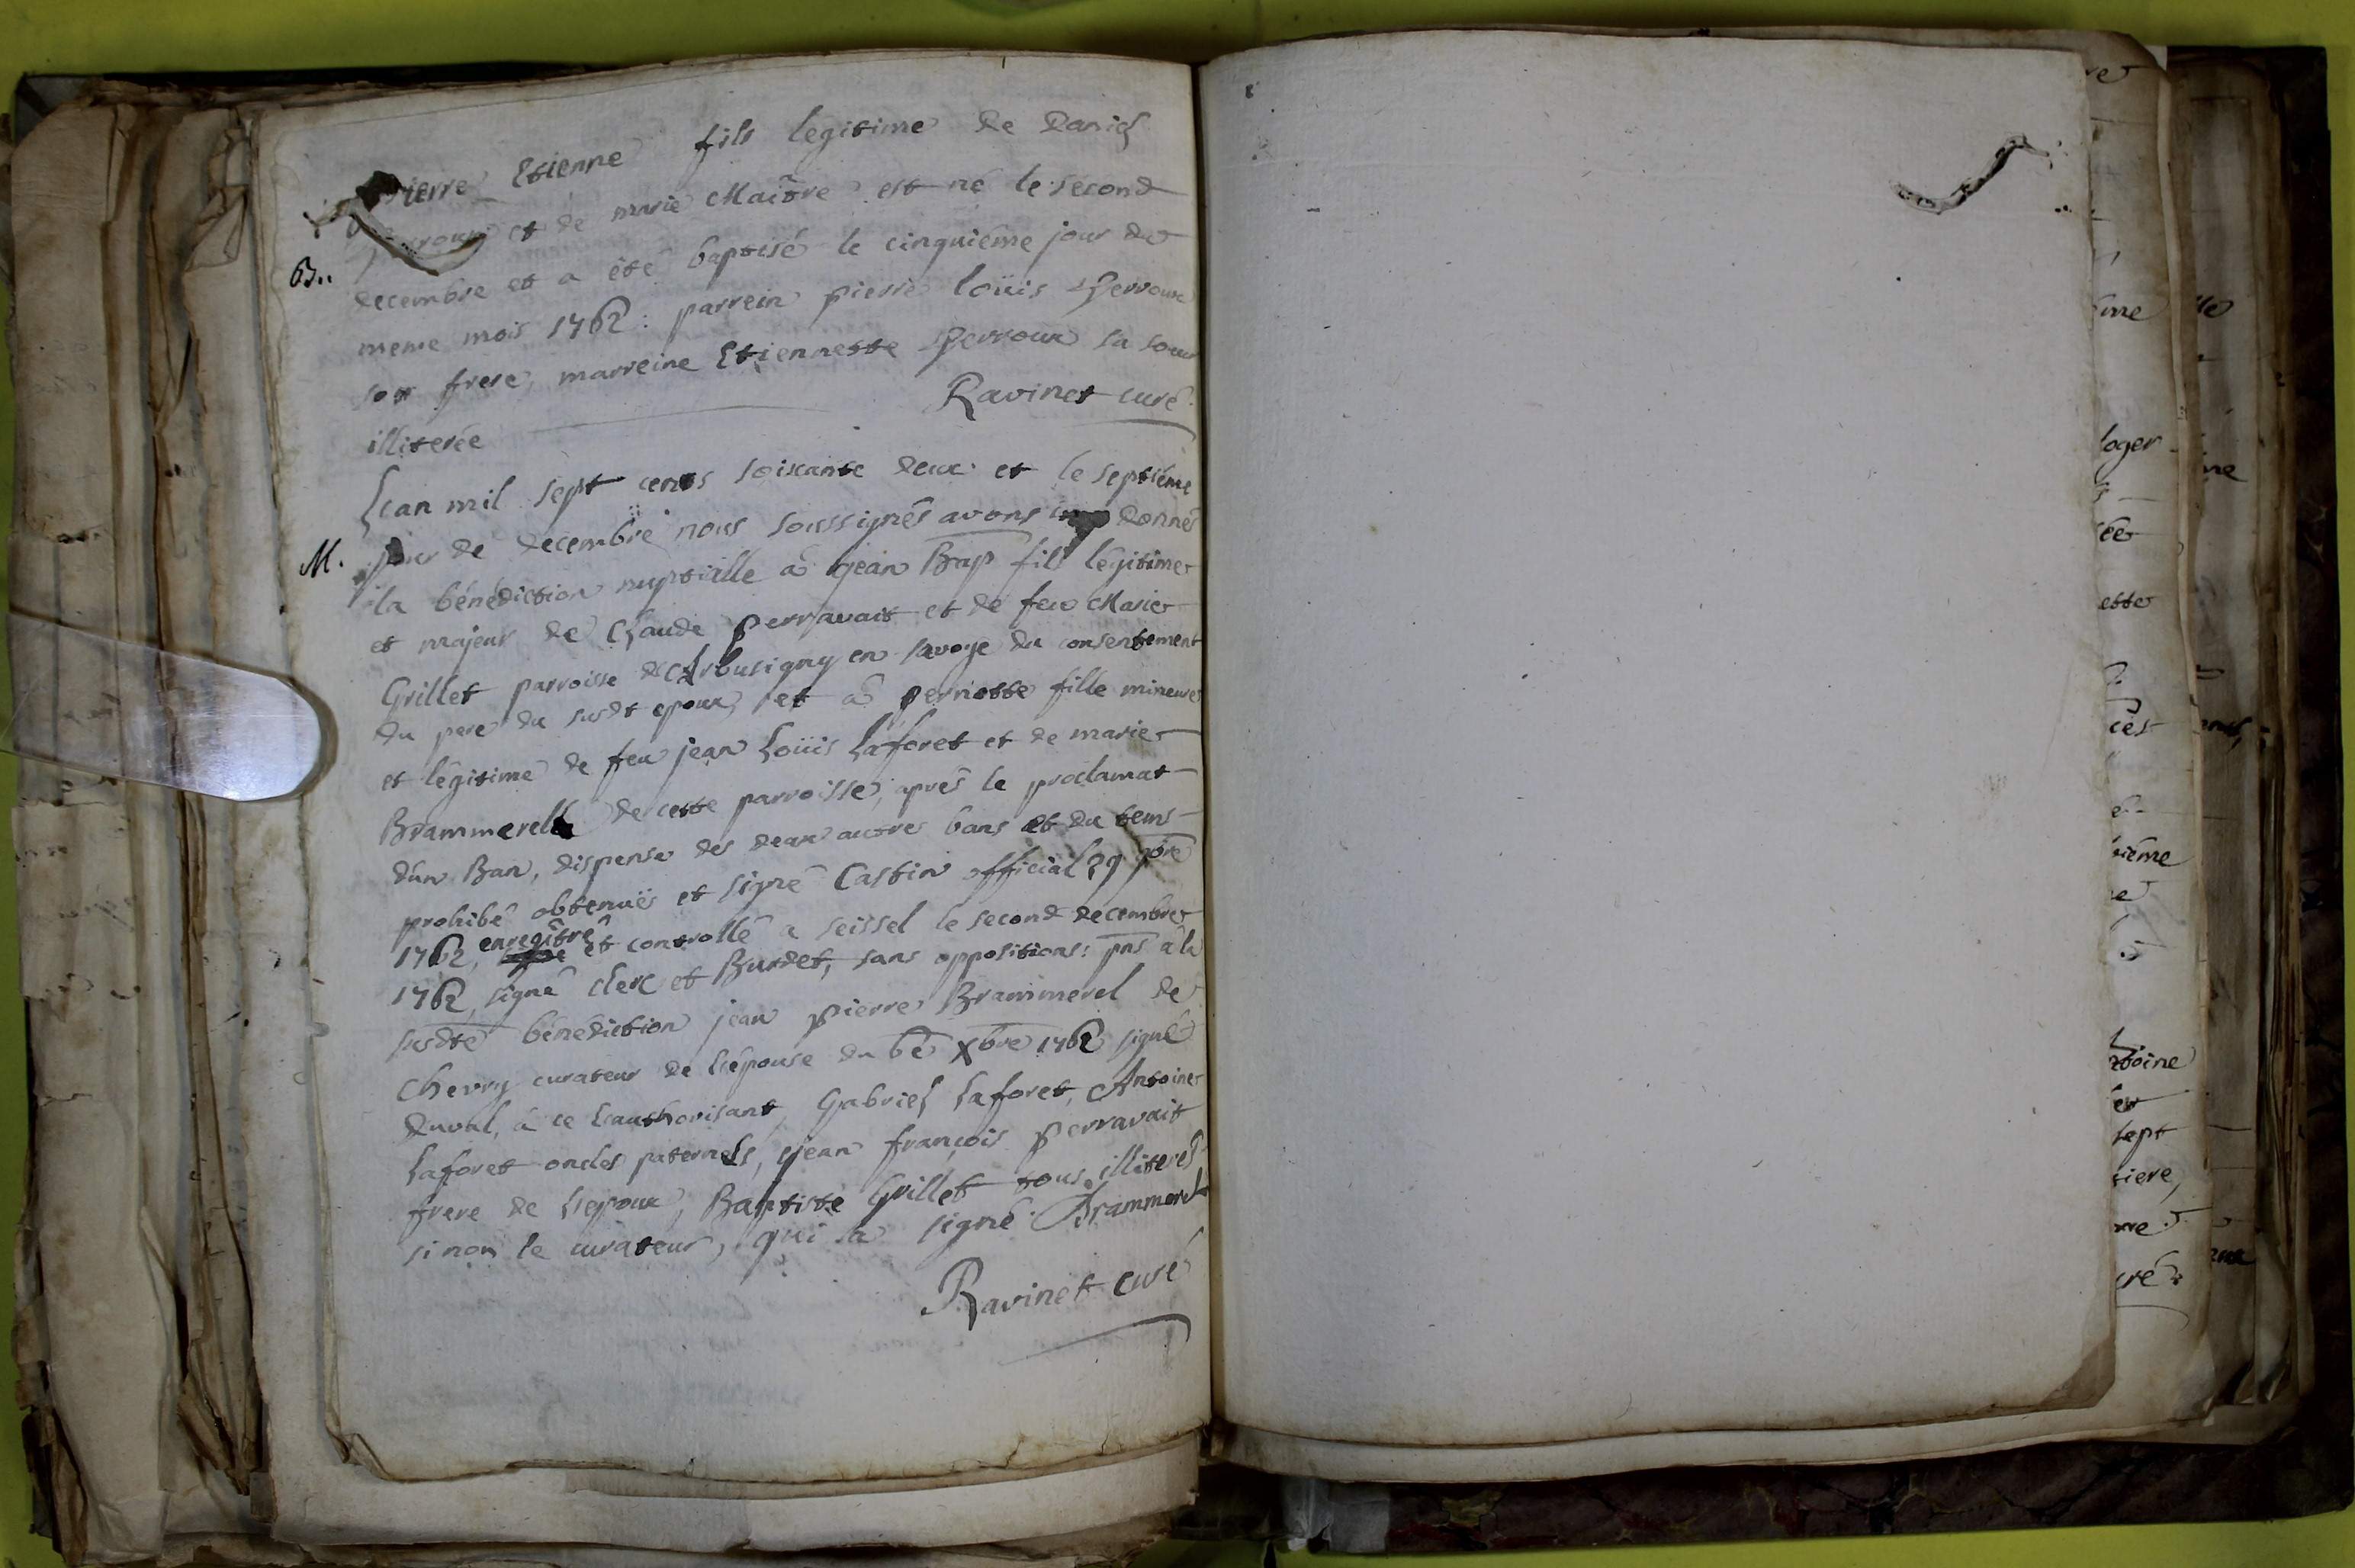 Pierre Etienne fils legitime de Daniel
Perroux et de marie Maître est né le second
B.. decembre et a été baptisé le cinquiéme jour de
meme mois 1762 : parrein pierre loüis Perroux
son frere, marreine Etiennette Perroux sa sœur
illiterée Ravinet curé.
L'an mil sept cents soixante deux et le septiéme
M. jour de decembre nous soussignés avons donnés
la bénédiction nuptialle à jean Bap fils légitime
et majeur de Claude perravait et de feue Marie
Grillet parroisse d'Arbusigny en savoye du consentement
du pere du susdt epoux, et à pernette fille mineure
et légitime de feu jean Loüis Laforet et de marie
Brammerel de cette parroisse, aprés le proclamat
d'un Ban, dispense des deux autres bans et du tems
prohibé obtenuës et signé Castin official 29 9bre
1762, enregîtré et controllé a seissel le second decembre
1762, signé clerc et Burdet, sans oppositions: pns à la
susdte bénédiction jean pierre Brammerel de
Chevry curateur de l'épouse du 6e Xbre 1762 signé
Duval, à ce l'authorisant, Gabriel Laforet, Antoine
Laforet oncles paternels, jean françois perravait
frere de l'epoux, Baptiste Grillet tous illiterés
sinon le curateur, qui a signé. Brammerel
Ravinet curé
re
me
loger
ée
ette
cés
iéme
toine
er
sept
tiere,
rre
uré